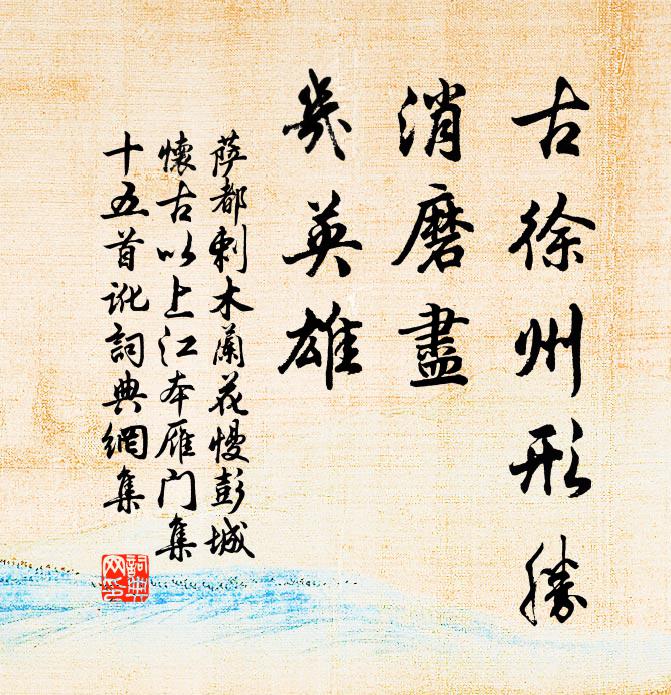 古徐州形勝
消磨盡
幾英雄
薩都剌木蘭花慢彭城
懷古以上江本雁门集
十五首訛詞典網集
詞典
网